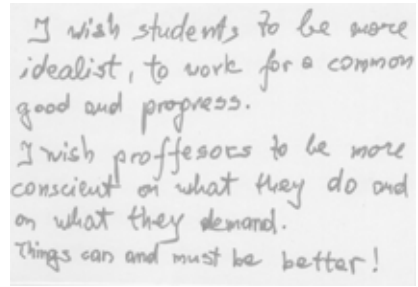 I wish students to be more
idealist, to work for a common
good and progress.
I wish proffesors to be more
conscient on what they do and
on what they demand.
Things can and must be better!